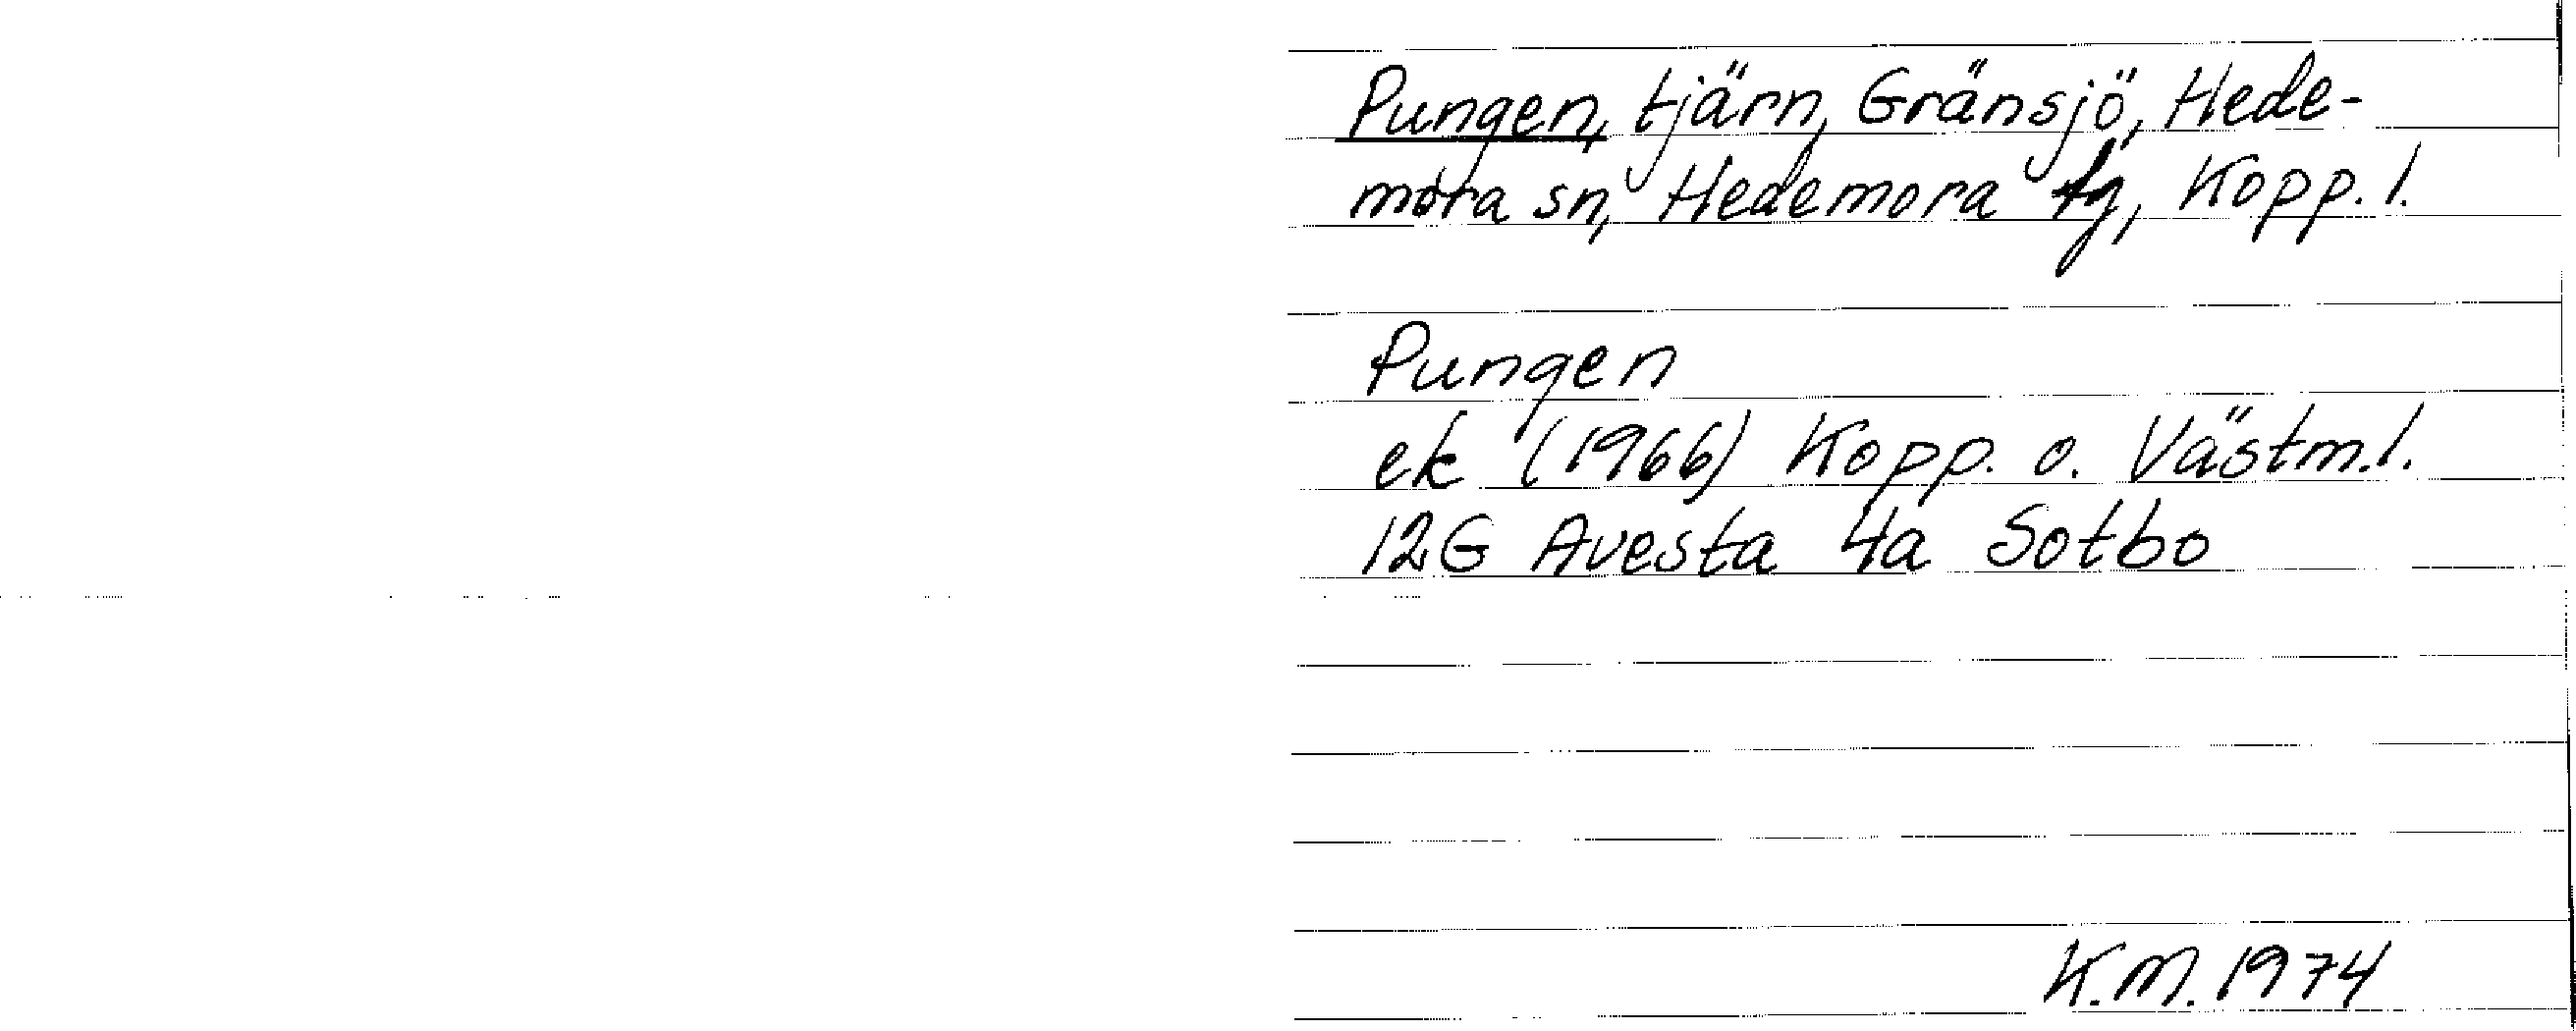 Pungen, tjärn, Gränsjö, Hede-
mora sn, Hedemora tg, Kopp. l.
Pungen
ek (1966) Kopp. o. Västm. l.
12G Avesta 4a Sotbo
K.M. 1974